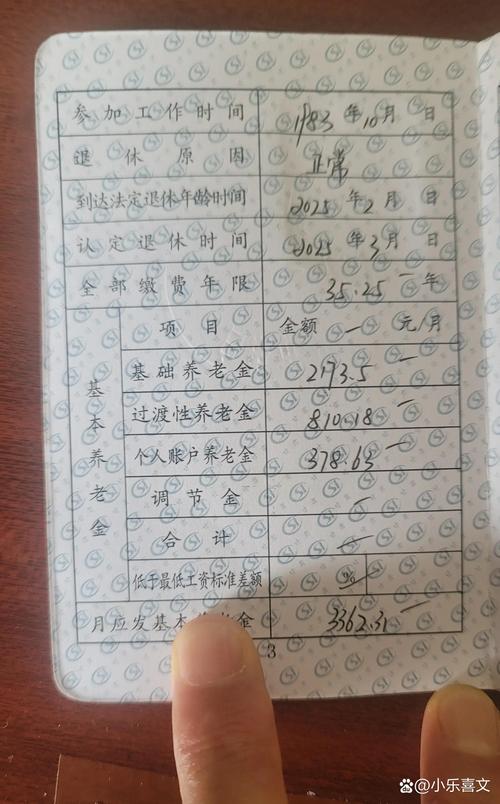 参加工作时间 1983年10月 日
退休原因 正常
到达法定退休年龄时间 2025年2月 日
认定退休时间 2025年3月 日
全部缴费年限 35.25 年
基本养老金
项目 金额 元/月
基础养老金 2173.5
过渡性养老金 810.18
个人账户养老金 378.63
调节金
合计
低于最低工资标准差额 %
月应发基本 金 3362.31
3
小乐喜文